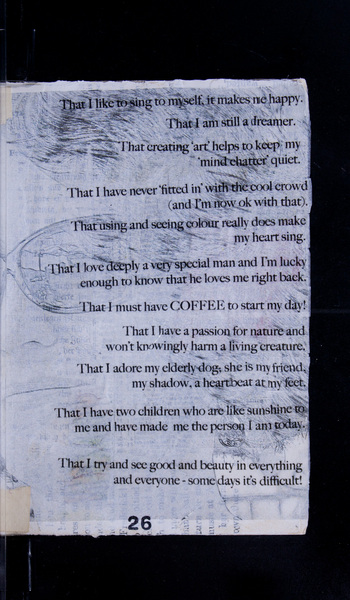 That I like to sing to myself, it makes me happy.
That I am still a dreamer.
That creating 'art' helps to keep my
'mind chatter' quiet.
That I have never 'fitted in' with the cool crowd
(and I'm now ok with that).
That using and seeing colour really does make
my heart sing.
That I love deeply a very special man and I'm lucky
enough to know that he loves me right back.
That I must have COFFEE to start my day!
That I have a passion for nature and
won't knowingly harm a living creature.
That I adore my elderly dog, she is my friend,
my shadow, a heartbeat at my feet.
That I have two children who are like sunshine to
me and have made me the person I am today.
That I try and see good and beauty in everything
and everyone - some days it's difficult!
26